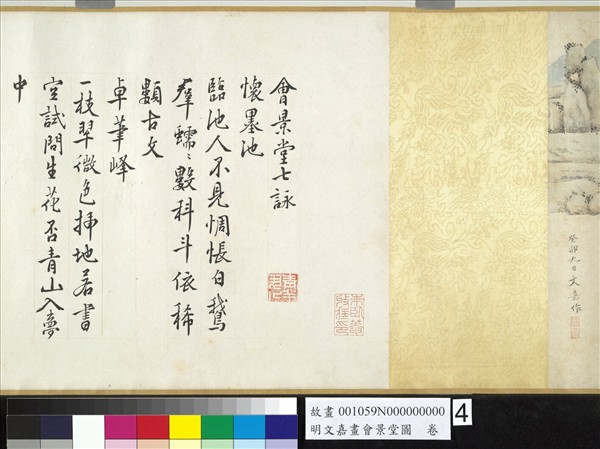 癸卯九日文嘉作
會景堂七詠
懷墨池
臨池人不見惆悵白鵞
羣蠕〻數科斗依稀
類古文
卓筆峰
一枝翠微色插地若書
空試問生花否青山入夢
中
故畫 001059N000000000
明文嘉畫會景堂圖 卷
4